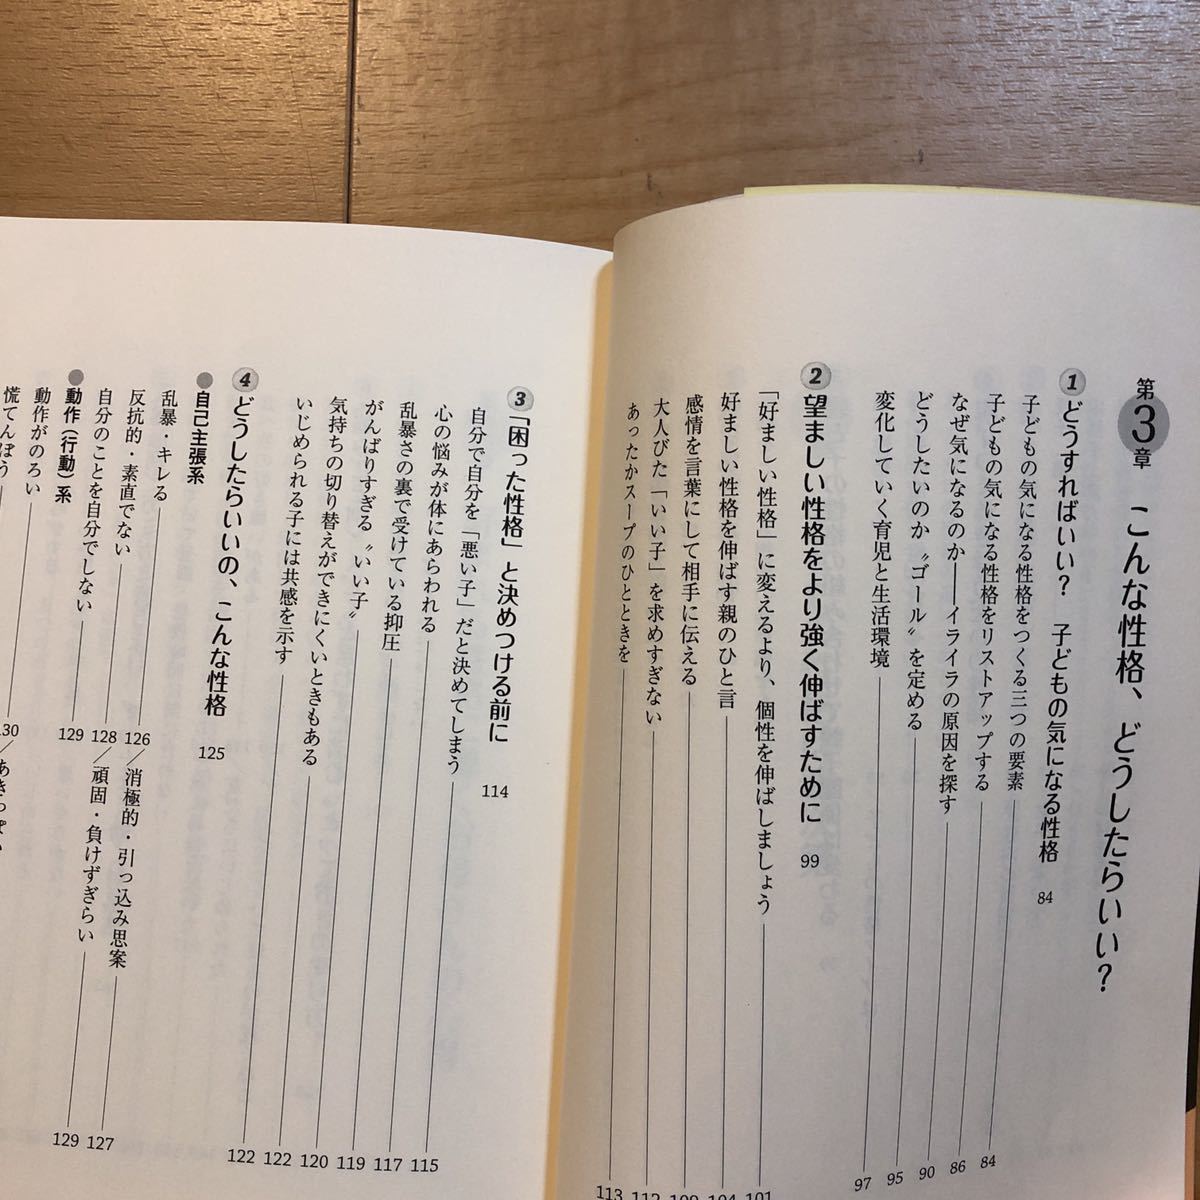 第3章 こんな性格、どうしたらいい？
1 どうすればいい？ 子どもの気になる性格 84
子どもの気になる性格をつくる三つの要素 84
子どもの気になる性格をリストアップする 86
なぜ気になるのか——イライラの原因を探す 90
どうしたいのか〝ゴール〟を定める 95
変化していく育児と生活環境 97
2 望ましい性格をより強く伸ばすために 99
「好ましい性格」に変えるより、個性を伸ばしましょう 101
好ましい性格を伸ばす親のひと言 104
感情を言葉にして相手に伝える 109
大人びた「いい子」を求めすぎない 112
あったかスープのひとときを 113
3 「困った性格」と決めつける前に 114
自分で自分を「悪い子」だと決めてしまう 115
心の悩みが体にあらわれる 117
乱暴さの裏で受けている抑圧 119
がんばりすぎる〝いい子〟 120
気持ちの切り替えができにくいときもある 122
いじめられる子には共感を示す 122
4 どうしたらいいの、こんな性格 125
●自己主張系
乱暴・キレる 126／消極的・引っ込み思案 127
反抗的・素直でない 128／頑固・負けずぎらい 129
自分のことを自分でしない 129
●動作（行動）系
動作がのろい 130／あきっぽい
慌てんぼう